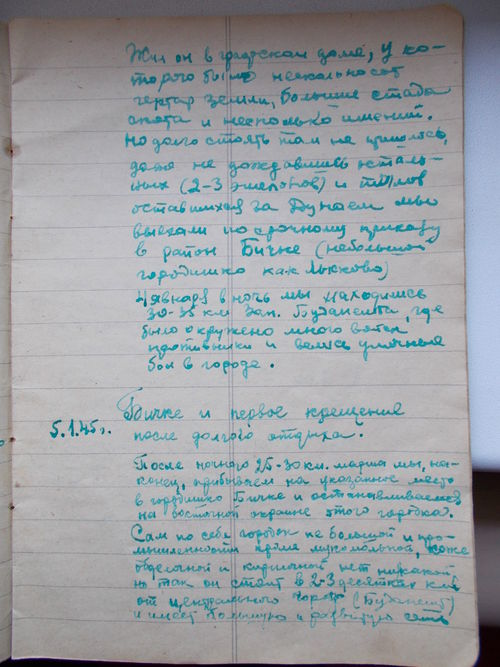 Жил он в графском доме, у ко-
торого было несколько сот
гектар земли, большие стада
скота и несколько имений.
Но долго стоять там не пришлось,
даже не дождавшись осталь-
ных (2-3 эшелонов) и тылов
оставшихся за Дунаем мы
выехали по срочному приказу
в район Бичке (небольшой
городишко как Лысково)
4 января в ночь мы находились
30-35 км зап. Будапешта, где
было окружено много войск
противника и велись уличные
бои в городе.
Бичке и первое крещение
5.1.45г. после долгого отдыха.
После ночного 25-30 км. марша мы, на-
конец, прибываем на указанное место
в городишко Бичке и останавливаемся
на восточной окраине этого городка.
Сам по себе городок не большой и про-
мышленности кроме мукомольной, коже
обделочной и кирпичной нет никакой
но так он стоит в 2-3 десятках км
от центрального города (Будапешт)
и имеет большую и развитую сеть